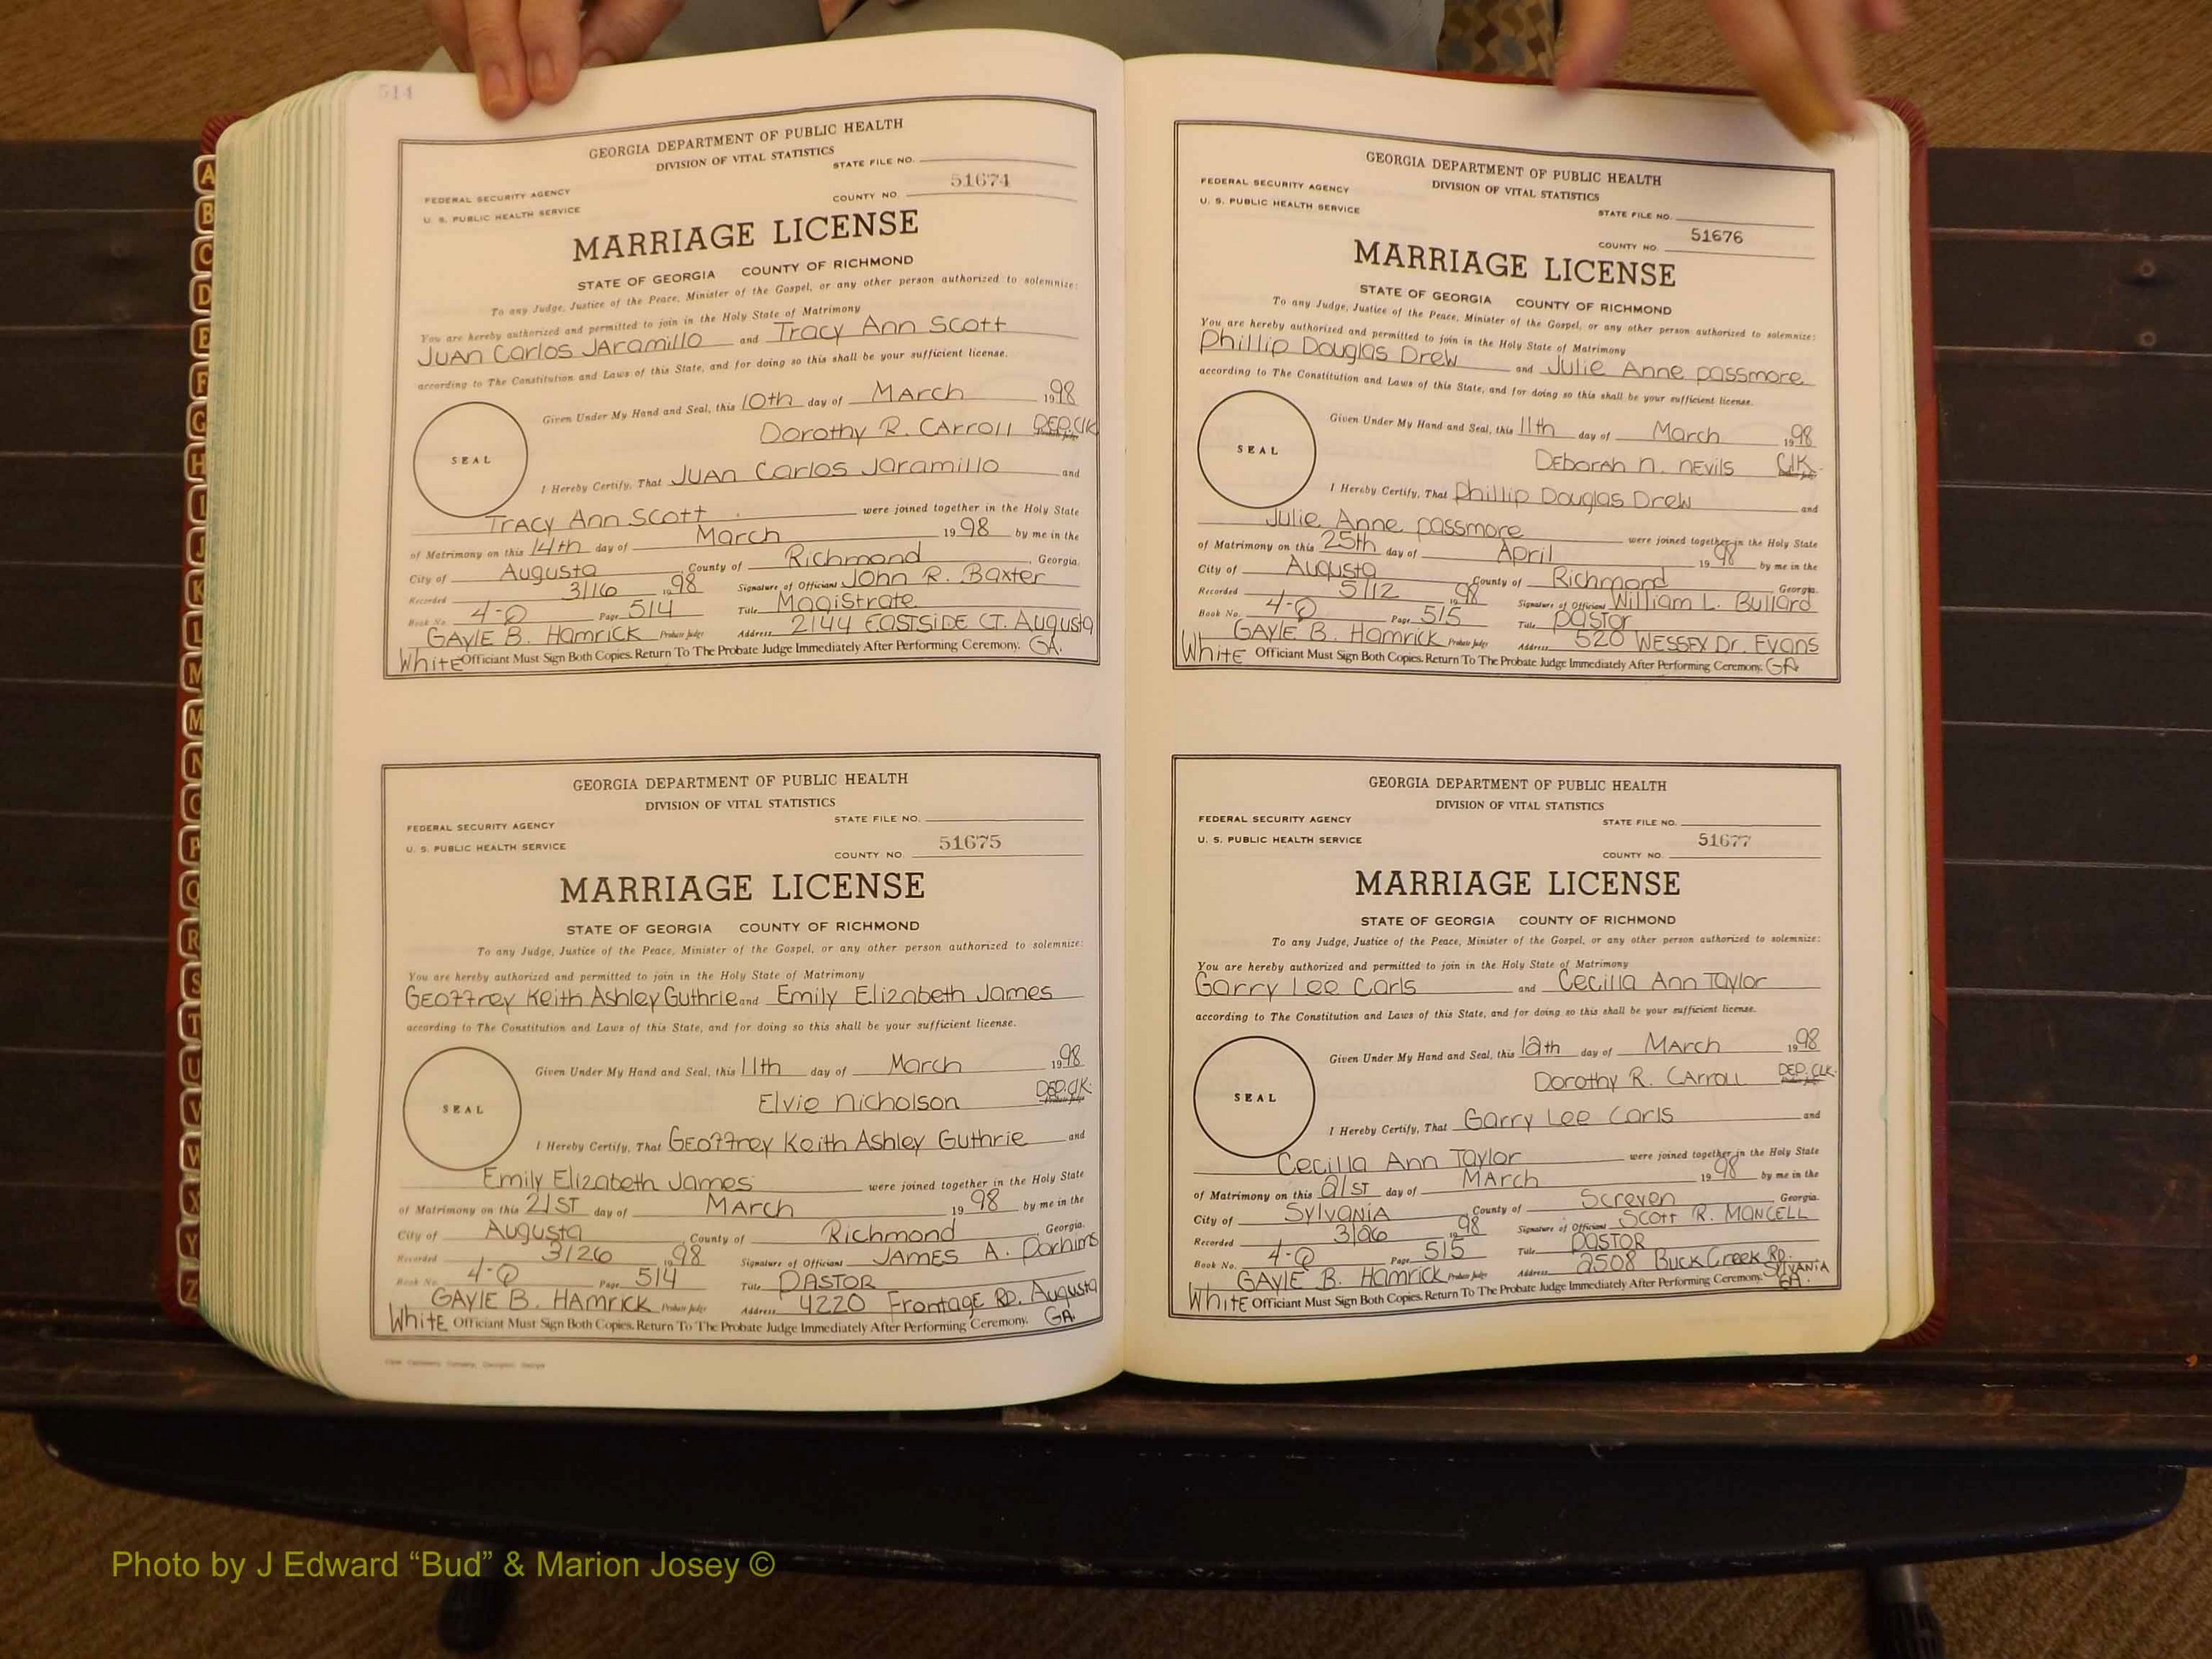 514
GEORGIA DEPARTMENT OF PUBLIC HEALTH
DIVISION OF VITAL STATISTICS
STATE FILE NO.
FEDERAL SECURITY AGENCY
U. S. PUBLIC HEALTH SERVICE
COUNTY NO. 51674
MARRIAGE LICENSE
STATE OF GEORGIA COUNTY OF RICHMOND
To any Judge, Justice of the Peace, Minister of the Gospel, or any other person authorized to solemnize:
You are hereby authorized and permitted to join in the Holy State of Matrimony
Juan Carlos Jaramillo and Tracy Ann Scott
according to The Constitution and Laws of this State, and for doing so this shall be your sufficient license.
Given Under My Hand and Seal, this 10th day of March 1998
Dorothy R. Carroll DEP. Clk
SEAL
I Hereby Certify, That Juan Carlos Jaramillo and
Tracy Ann Scott were joined together in the Holy State
of Matrimony on this 14th day of March 1998 by me in the
City of Augusta, County of Richmond, Georgia.
Recorded 3/16 1998 Signature of Officiant John R. Baxter
Book No. 4-Q Page 514 Title Magistrate
GAYLE B. Hamrick Probate Judge Address 2144 EASTSIDE CT. Augusta
White Officiant Must Sign Both Copies. Return To The Probate Judge Immediately After Performing Ceremony. GA.
GEORGIA DEPARTMENT OF PUBLIC HEALTH
DIVISION OF VITAL STATISTICS
STATE FILE NO.
FEDERAL SECURITY AGENCY
U. S. PUBLIC HEALTH SERVICE
COUNTY NO. 51675
MARRIAGE LICENSE
STATE OF GEORGIA COUNTY OF RICHMOND
To any Judge, Justice of the Peace, Minister of the Gospel, or any other person authorized to solemnize:
You are hereby authorized and permitted to join in the Holy State of Matrimony
Geoffrey Keith Ashley Guthrie and Emily Elizabeth James
according to The Constitution and Laws of this State, and for doing so this shall be your sufficient license.
Given Under My Hand and Seal, this 11th day of March 1998
Elvie Nicholson DEP. Clk.
SEAL
I Hereby Certify, That Geoffrey Keith Ashley Guthrie and
Emily Elizabeth James were joined together in the Holy State
of Matrimony on this 21ST day of March 1998 by me in the
City of Augusta, County of Richmond, Georgia.
Recorded 3/26 1998 Signature of Officiant JAMES A.
Book No. 4-Q Page 514 Title PASTOR
GAYLE B. HAMRICK Probate Judge Address 4220 Frontage RD. Augusta
White Officiant Must Sign Both Copies. Return To The Probate Judge Immediately After Performing Ceremony. GA.
GEORGIA DEPARTMENT OF PUBLIC HEALTH
DIVISION OF VITAL STATISTICS
FEDERAL SECURITY AGENCY
U. S. PUBLIC HEALTH SERVICE
STATE FILE NO.
COUNTY NO. 51676
MARRIAGE LICENSE
STATE OF GEORGIA COUNTY OF RICHMOND
To any Judge, Justice of the Peace, Minister of the Gospel, or any other person authorized to solemnize:
You are hereby authorized and permitted to join in the Holy State of Matrimony
Phillip Douglas Drew and Julie Anne passmore
according to The Constitution and Laws of this State, and for doing so this shall be your sufficient license.
Given Under My Hand and Seal, this 11th day of March 1998
Deborah N. Nevils Clk.
SEAL
I Hereby Certify, That Phillip Douglas Drew and
Julie Anne passmore were joined together in the Holy State
of Matrimony on this 25th day of April 1998 by me in the
City of Augusta, County of Richmond Georgia.
Recorded 5/12 1998 Signature of Officiant William L. Bullard
Book No. 4-Q Page 515 Title Pastor
GAYLE B. Hamrick Probate Judge Address 520 WESSEX Dr. Evans
White Officiant Must Sign Both Copies. Return To The Probate Judge Immediately After Performing Ceremony. GA
GEORGIA DEPARTMENT OF PUBLIC HEALTH
DIVISION OF VITAL STATISTICS
FEDERAL SECURITY AGENCY
STATE FILE NO.
U. S. PUBLIC HEALTH SERVICE
COUNTY NO. 51677
MARRIAGE LICENSE
STATE OF GEORGIA COUNTY OF RICHMOND
To any Judge, Justice of the Peace, Minister of the Gospel, or any other person authorized to solemnize:
You are hereby authorized and permitted to join in the Holy State of Matrimony
Garry Lee Carls and Cecilia Ann Taylor
according to The Constitution and Laws of this State, and for doing so this shall be your sufficient license.
Given Under My Hand and Seal, this 12th day of March 1998
Dorothy R. Carroll DEP. Clk.
SEAL
I Hereby Certify, That Garry Lee Carls and
Cecilia Ann Taylor were joined together in the Holy State
of Matrimony on this 21ST day of March 1998 by me in the
City of Sylvania, County of Screven Georgia.
Recorded 3/26 1998 Signature of Officiant Scott R. MANCELL
Book No. 4-Q Page 515 Title PASTOR
GAYLE B. Hamrick Probate Judge Address 2508 Buck Creek RD. Sylvania
White Officiant Must Sign Both Copies. Return To The Probate Judge Immediately After Performing Ceremony. GA.
A
B
C
D
E
F
G
H
I
J
K
L
M
M
N
O
P
Q
R
S
T
U
V
W
X
Y
Z
Photo by J Edward “Bud” & Marion Josey ©